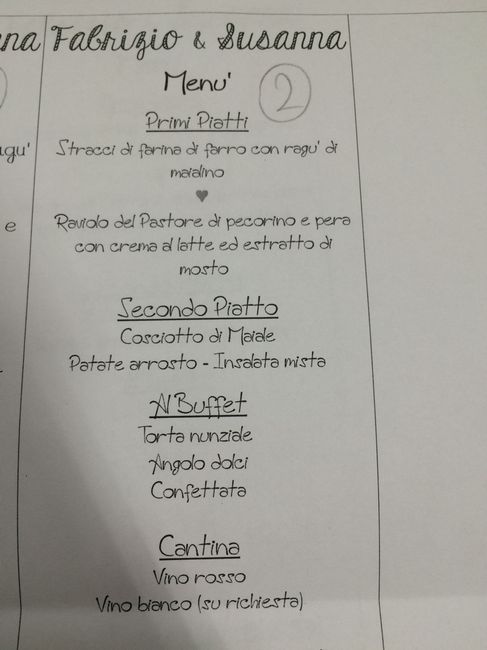 na Fabrizio & Susanna
Menu'
2
Primi Piatti
agu' Stracci di farina di farro con ragu' di
maialino
e Raviolo del Pastore di pecorino e pera
con crema al latte ed estratto di
mosto
Secondo Piatto
Cosciotto di Maiale
Patate arrosto - Insalata mista
Al Buffet
Torta nunziale
Angolo dolci
Confettata
Cantina
Vino rosso
Vino bianco (su richiesta)